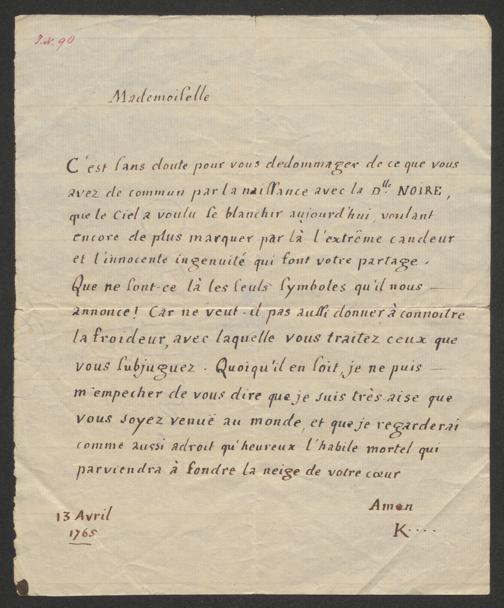 J.N. 90
Mademoiſelle
C'est ſans doute pour vous dedommager de ce que vous
avez de commun par la naiſſance avec la D.lle NOIRE,
que le Ciel a voulu ſe blanchir aujourd'hui, voulant
encore de plus marquer par là l'extrême candeur
et l'innocente ingenuité qui font votre partage.
Que ne ſont-ce là les ſeuls ſymboles qu'il nous —
annonce! Car ne veut-il pas auſſi donner à connoitre
la froideur, avec laquelle vous traitez ceux que
vous ſubjuguez. Quoiqu'il en ſoit, je ne puis —
m'empecher de vous dire que je suis très-aise que
vous soyez venuë au monde, et que je regarderai
comme aussi adroit qu'heureux l'habile mortel qui
parviendra à fondre la neige de votre cœur
13 Avril
1765
Amen
K....